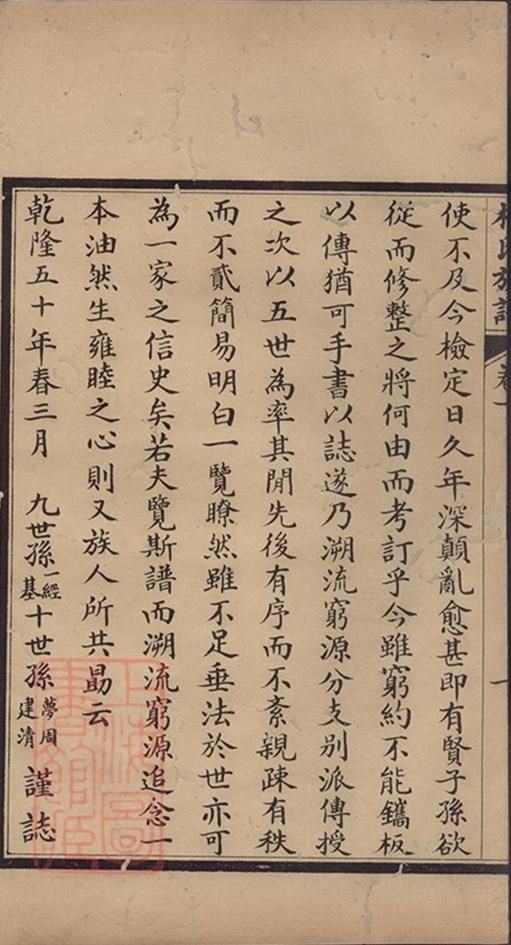 使不及今檢定日久年深顛亂愈甚即有賢子孫欲
從而修整之將何由而考訂乎今雖窮約不能鐫板
以傳猶可手書以誌遂乃溯流窮源分支別派傳授
之次以五世為率其閒先後有序而不紊親疎有秩
而不貳簡易明白一覽瞭然雖不足垂法於世亦可
為一家之信史矣若夫覽斯譜而溯流窮源追念一
本油然生雍睦之心則又族人所共勗云
乾隆五十年春三月 九世孫一經基十世孫夢周建清 謹誌